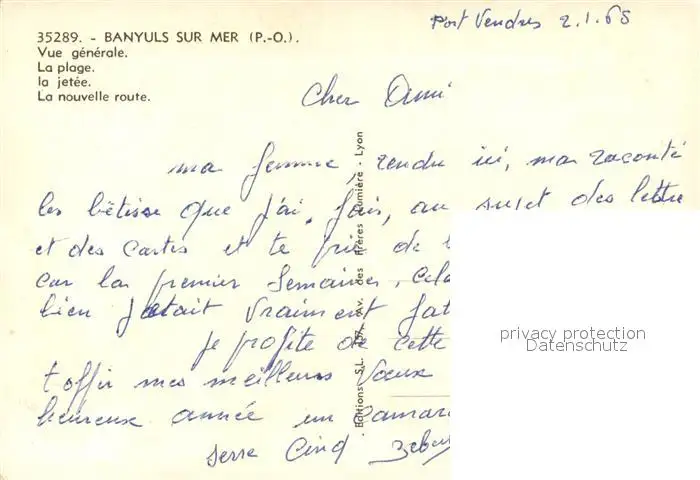 35289. - BANYULS SUR MER (P.-O.).
Vue générale.
La plage.
la jetée.
La nouvelle route.
Port Vendres 2.1.65
Cher Ami
ma femme, rendu ici, ma raconté
les bêtise que j'ai fais, au sujet des lettre
et des cartes et te prie de
car la premier Semaines, cela
bien j'etait vraiment fat
je profite de cette
t'offir mes meilleurs Vœux
heureux année un camar
serre Cinq
Editions S.L. Av. des Frères Lumière - Lyon
privacy protection
Datenschutz